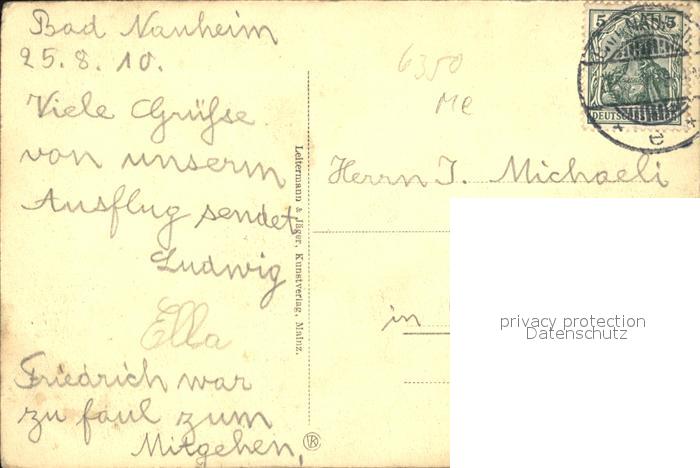 Bad Nauheim
25.8.10.
Viele Grüße
von unserm
Ausflug sendet
Ludwig
Ella
Friedrich war
zu faul zum
Mitgehen,
Leitermann & Jäger, Kunstverlag, Mainz.
6350
Me
5 5
DEUTSCHES
Herrn J. Michaeli
in
privacy protection
Datenschutz